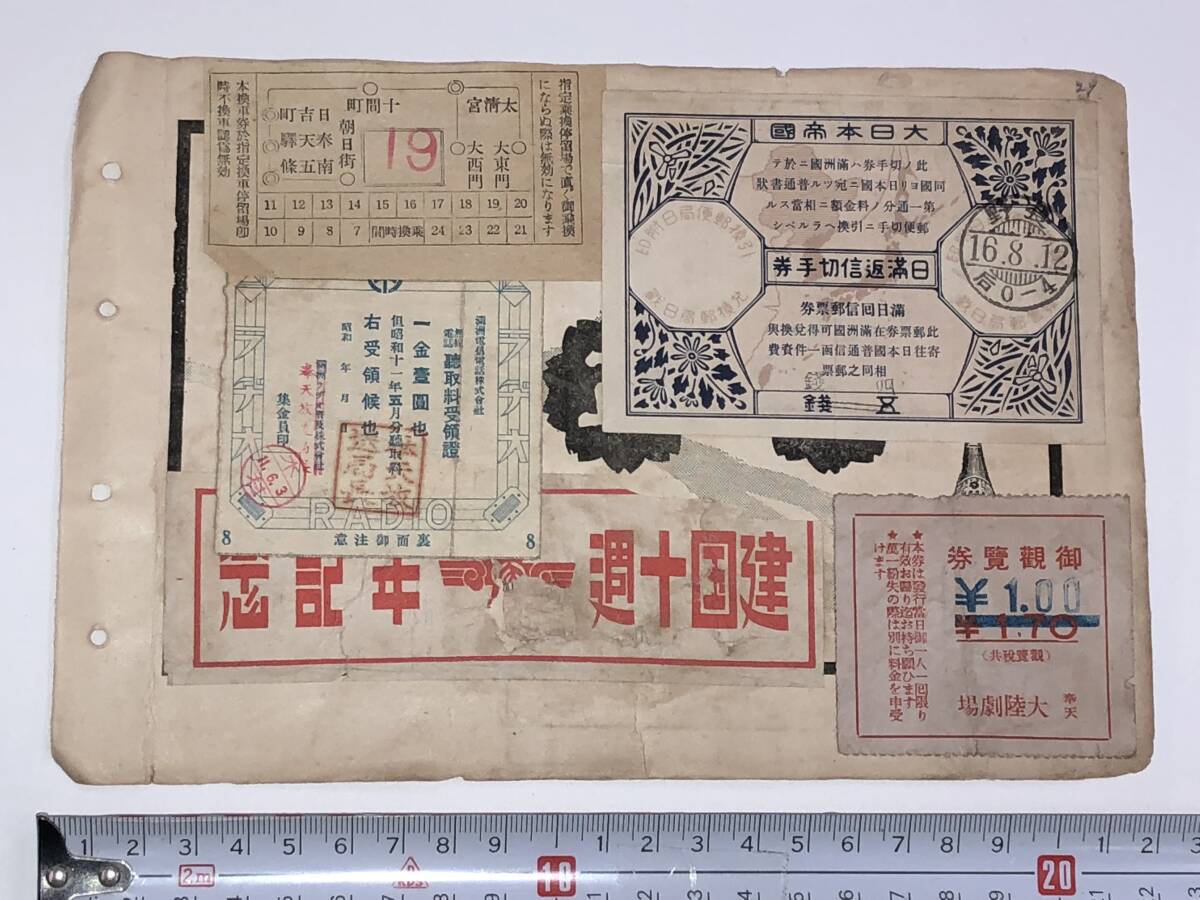 29
指定乘換停留場で直ぐ御乘換
にならぬ際は無効になります
太淸宮
十間町
日吉町
奉天驛
南五條
朝日街
19
大東門
大西門
11 12 13 14 15 16 17 18 19 20
10 9 8 7 乘換時間 24 23 22 21
本換車券於指定換車停留場卽
時不換車認爲無効
大日本帝國
此ノ切手券ハ滿洲國ニ於テ
同國ヨリ日本國ニ宛ツル普通書狀
第一通分ノ料金額ニ相當スル
郵便切手ニ引換ヘラルベシ
引換郵便局日附印
日滿返信切手券
滿日回信郵票券
此郵票券在滿洲國可得兌換與
寄往日本國普通信函一件資費
相同之郵票
兌換郵局日戳
四錢
五錢
16.8.12
后0-4
滿洲電信電話株式會社
無線電話 聽取料受領證
一金壹圓也
但昭和十一年五月分聽取料
右受領候也
昭和 年 月 日
集金員印
11.6.3
ラヂオ
RADIO
8 裏面御注意 8
建国十週年記念
御觀覽券
¥1.00
¥1.70
(觀覽稅共)
奉天 大陸劇場
★本券は發行當日御一人一回限り
有效お歸り迄お持ち願ひます
★萬一紛失の際は別に料金を申受
けます
1 2 3 4 5 6 7 8 9 10 1 2 3 4 5 6 7 8 9 20 1 2 3
2m